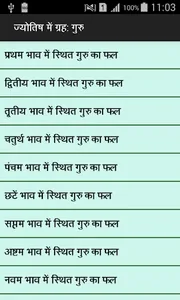 11:03
ज्योतिष में ग्रह: गुरु
प्रथम भाव में स्थित गुरु का फल
द्वितीय भाव में स्थित गुरु का फल
तृतीय भाव में स्थित गुरु का फल
चतुर्थ भाव में स्थित गुरु का फल
पंचम भाव में स्थित गुरु का फल
छटें भाव में स्थित गुरु का फल
सप्तम भाव में स्थित गुरु का फल
अष्टम भाव में स्थित गुरु का फल
नवम भाव में स्थित गुरु का फल